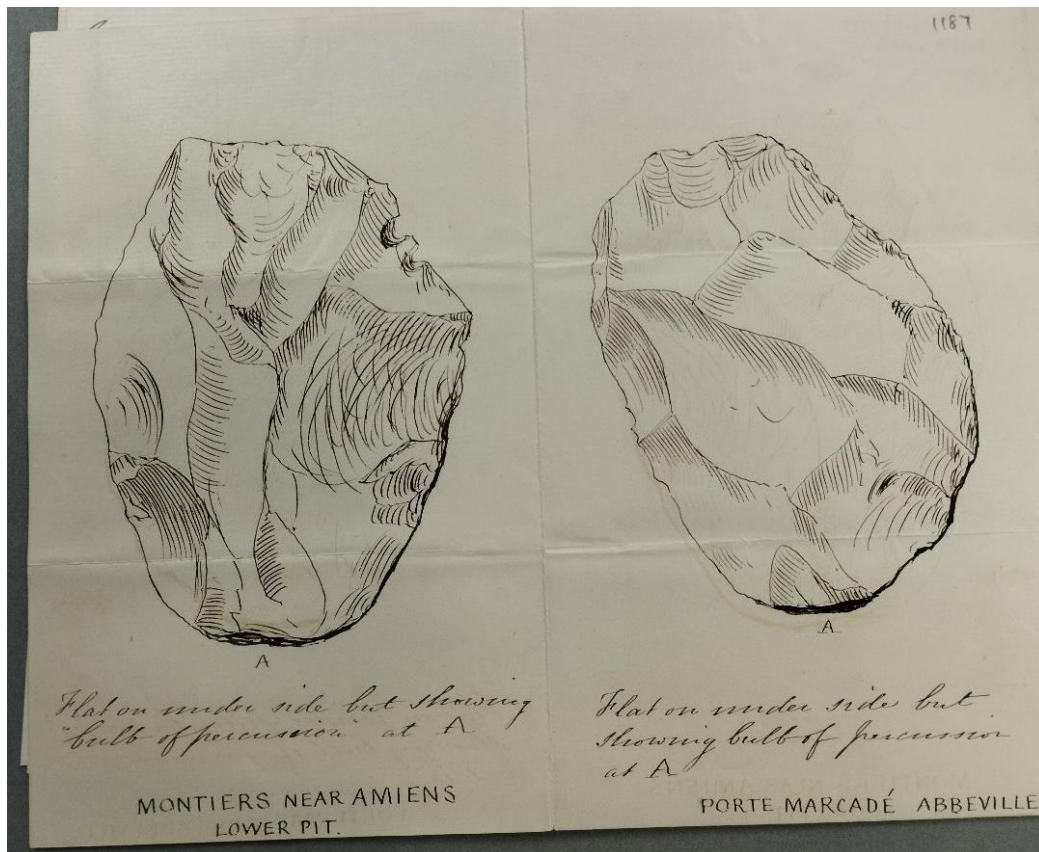 1187
A
Flat on under side but showing
"bulb of percussion" at A
MONTIERS NEAR AMIENS
LOWER PIT.
A
Flat on under side but
showing bulb of percussion
at A
PORTE MARCADÉ ABBEVILLE